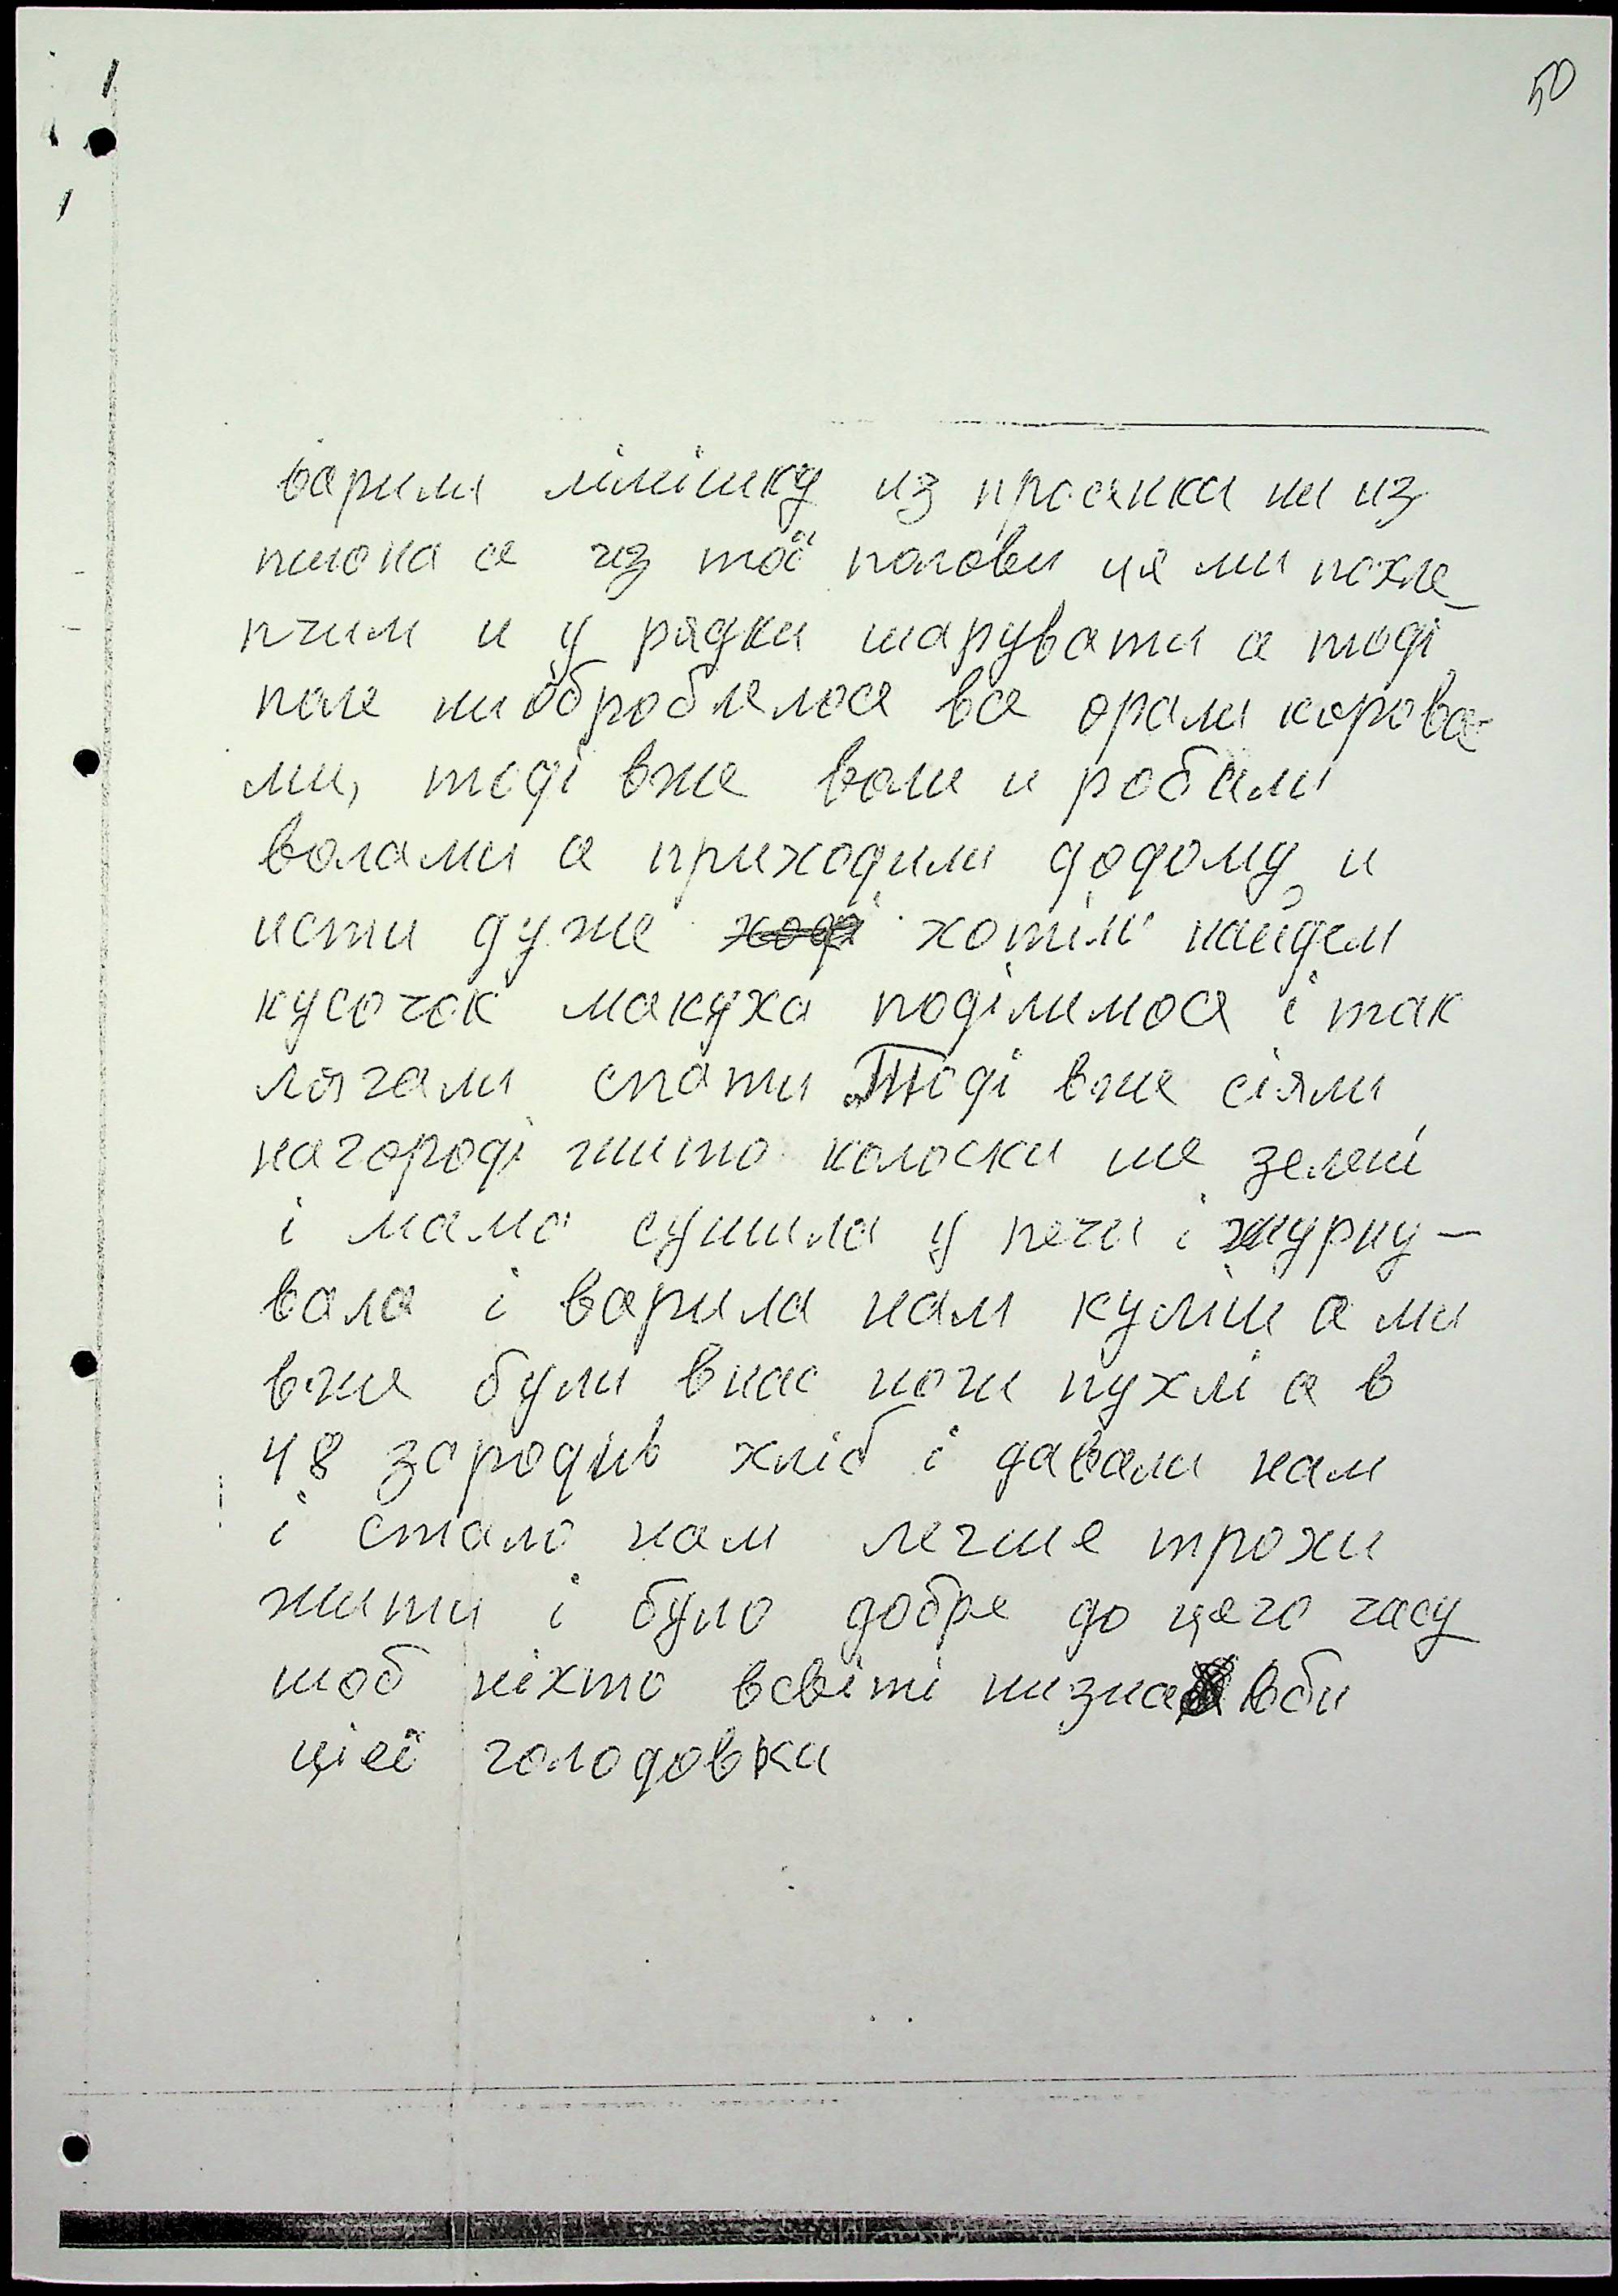 50
варили лімішку из просянки ни из
пшона а из тої полови ця ми похле_
пчим и у рядки шарувати а тоді
поле ниоброблялося все орали корова-
ми, тоді вже воли и робили
волами а приходили додому и
исти дуже ході хотіли найдем
кусочок макуха поділимося і так
лягали спати Тоді вже сіяли
нагороді жито колоски ше зелені
і мама сушила у печи і журну-
вала і варила нам куліш а ми
вже були внас ноги пухлі а в
48 зародив хліб і давали нам
і стало нам легше трохи
жити і було добре до цього часу
шоб ніхто всвіті низнав би
цієї голодовки